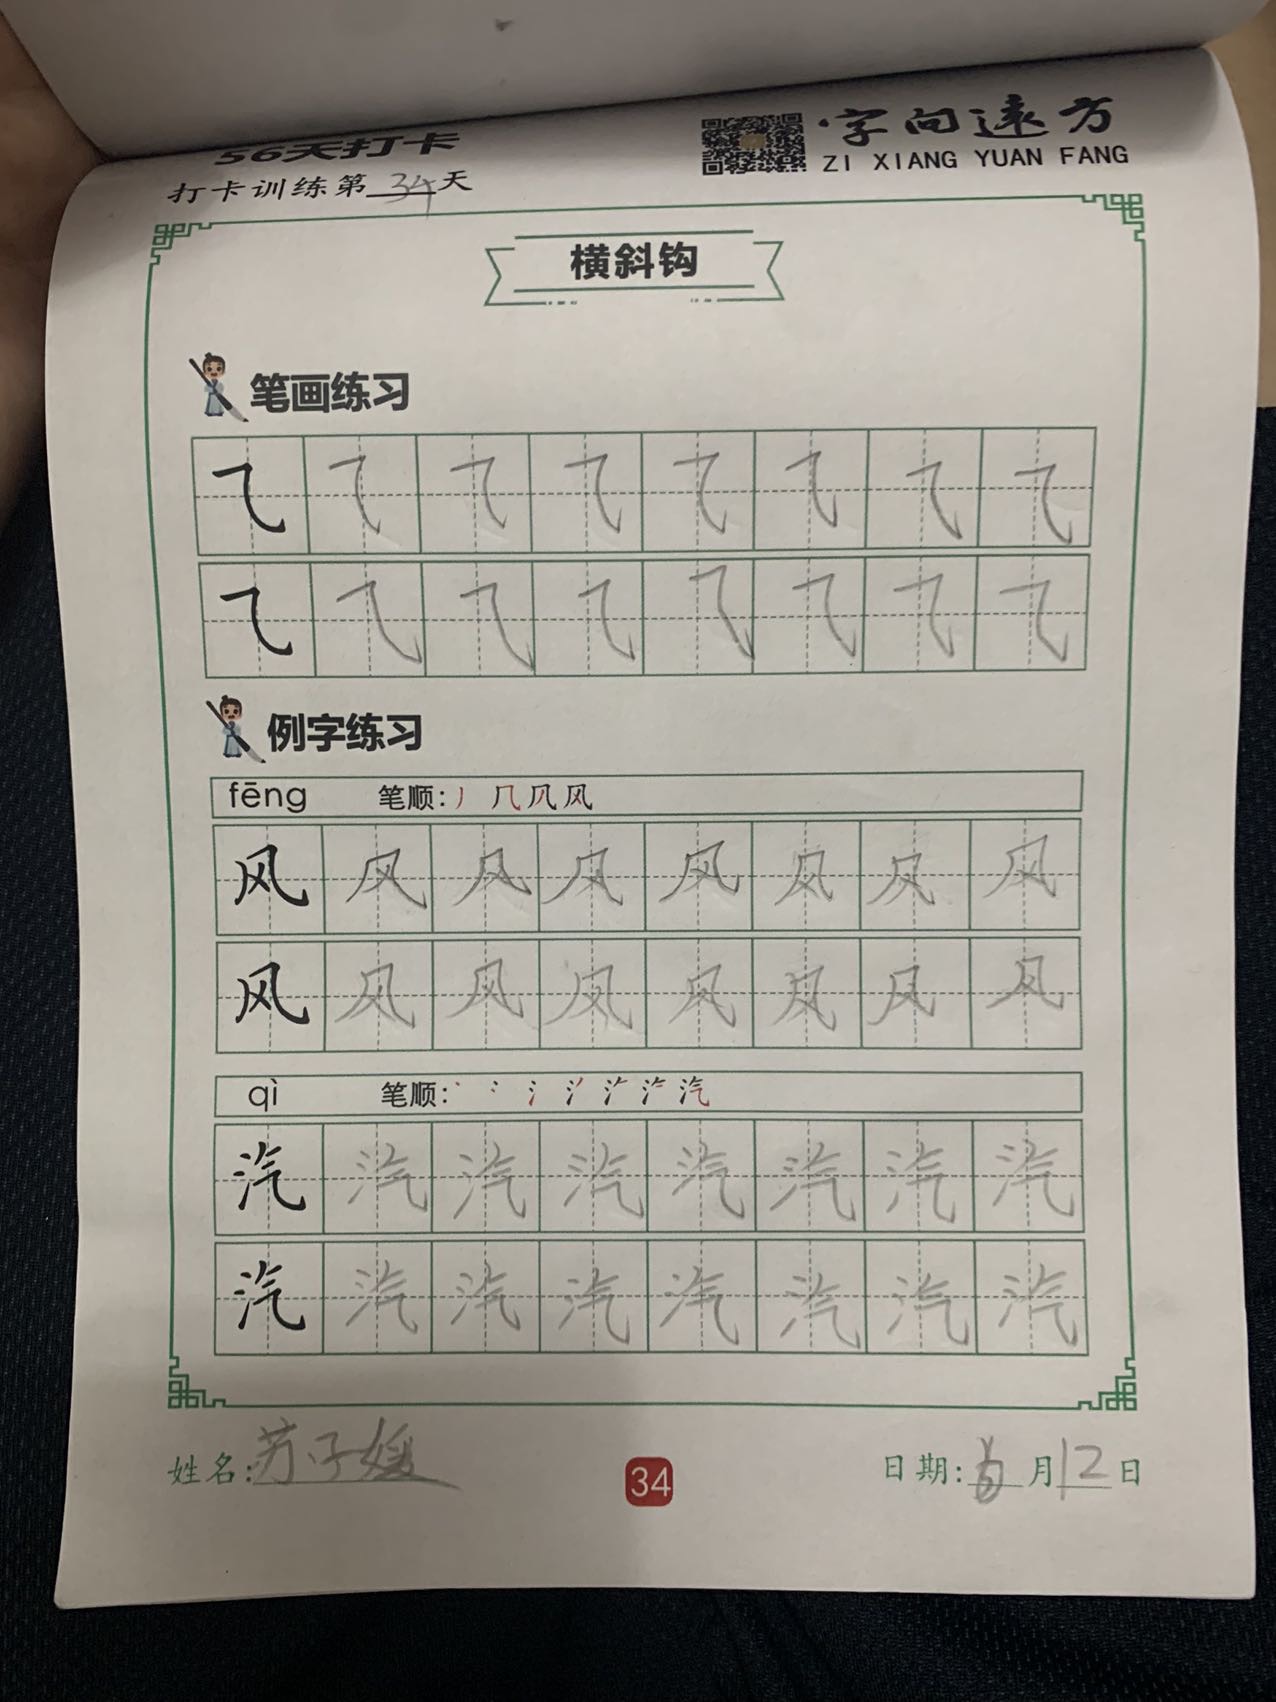 56天打卡
打卡训练第34天
字向远方
ZI XIANG YUAN FANG
横斜钩
笔画练习
⺄ ⺄ ⺄ ⺄ ⺄ ⺄ ⺄ ⺄
⺄ ⺄ ⺄ ⺄ ⺄ ⺄ ⺄ ⺄
例字练习
fēng 笔顺: 丿 几 凨 风
风 风 风 风 风 风 风 风
风 风 风 风 风 风 风 风
qì 笔顺: 丶 冫 氵 汽
汽 汽 汽 汽 汽 汽 汽 汽
汽 汽 汽 汽 汽 汽 汽 汽
姓名:苏子媛
34
日期: 月12日